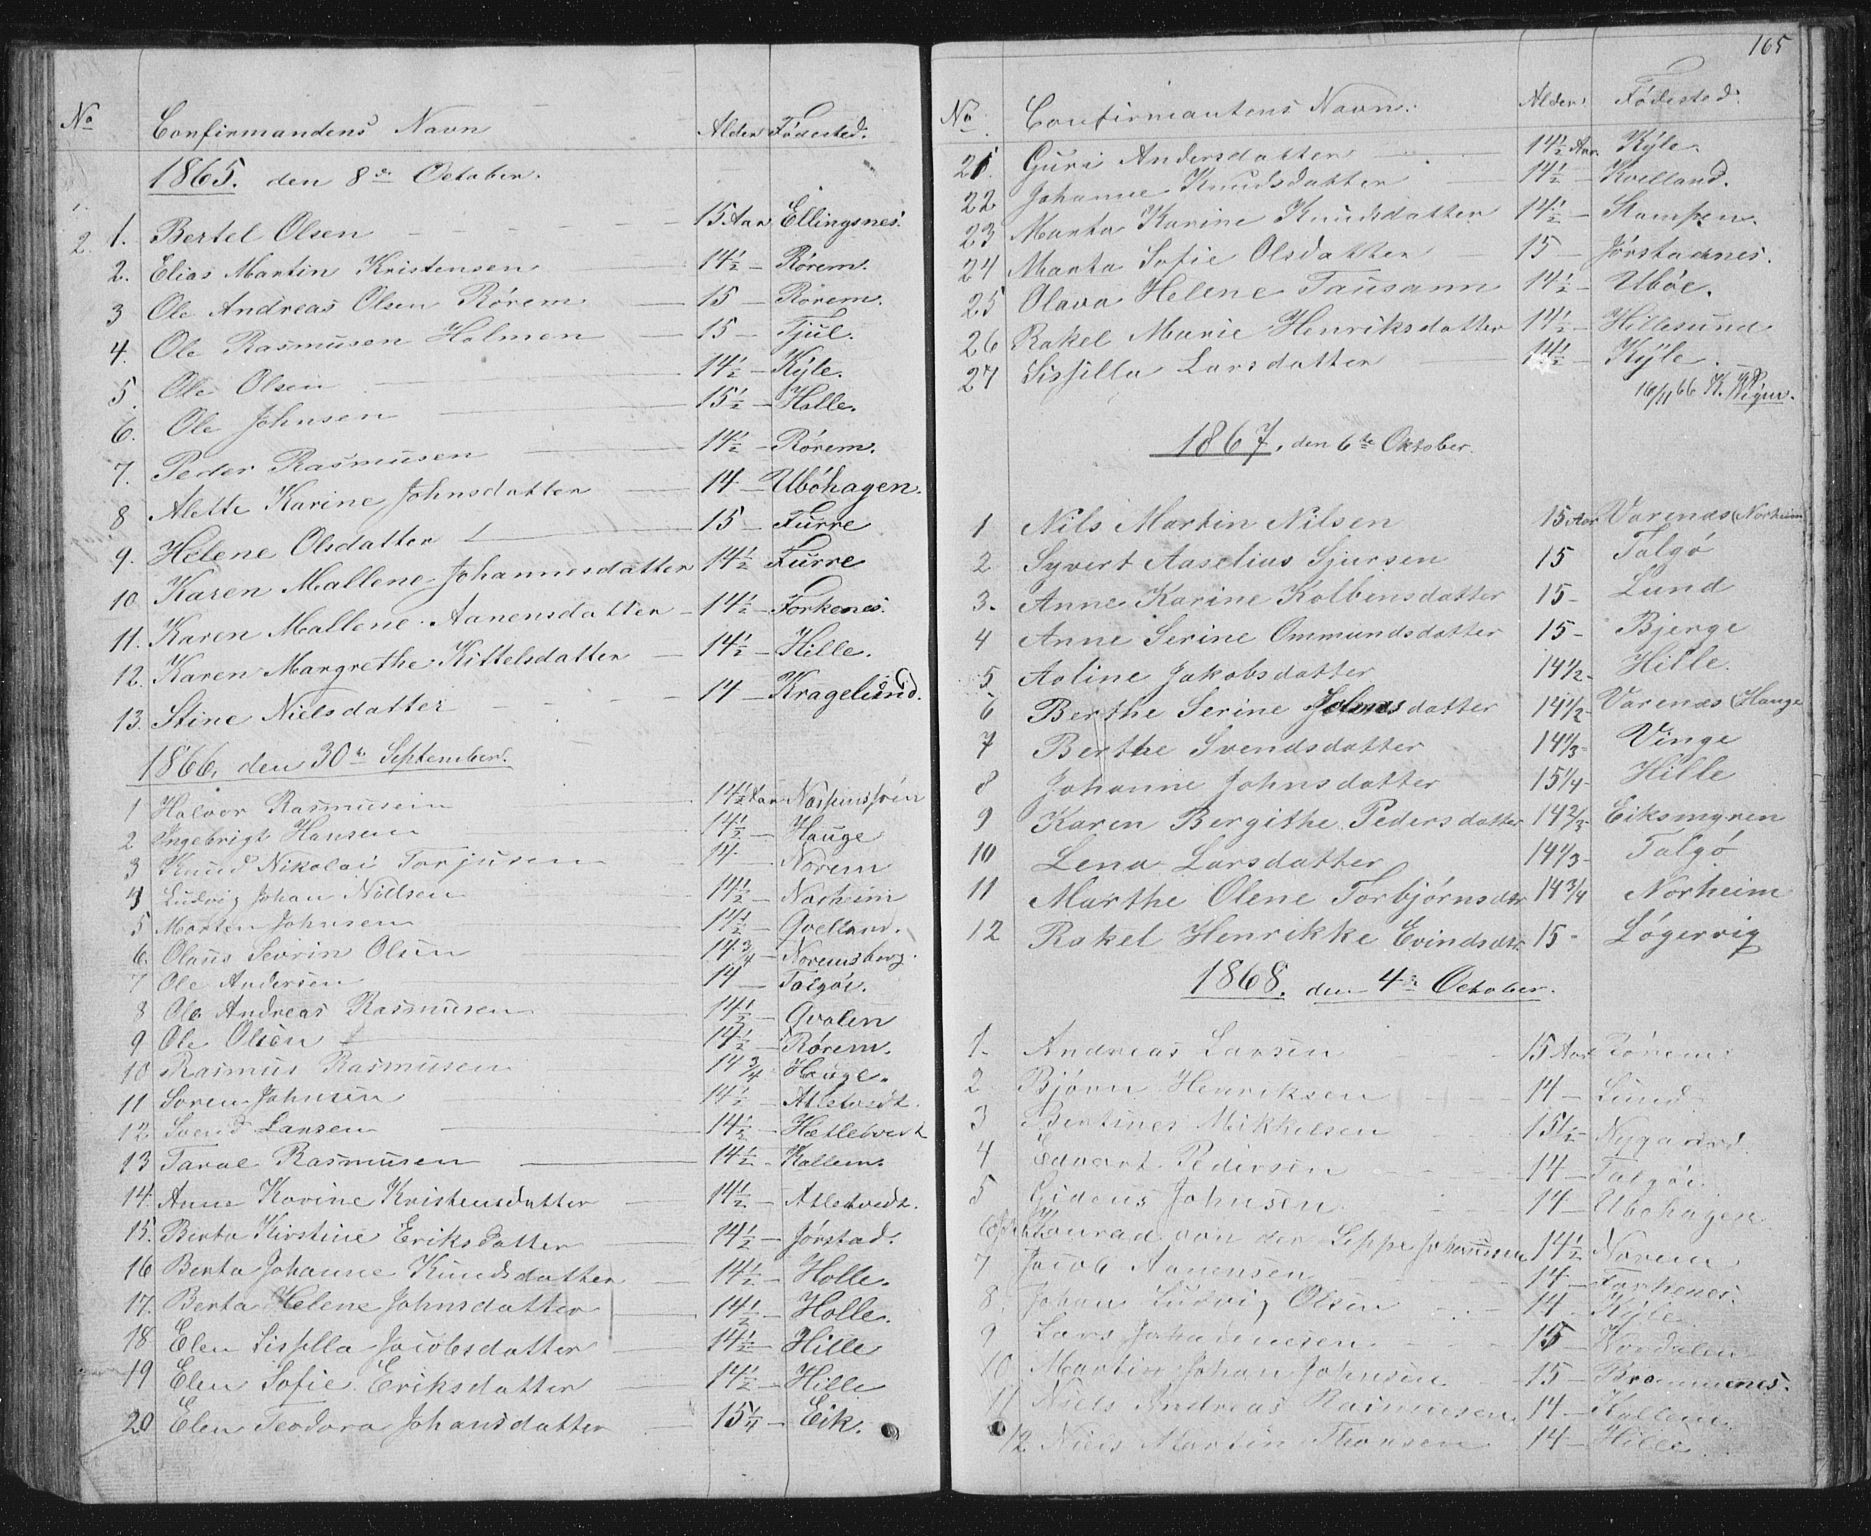 No Confirmandens Navn Alder Fødested.
1865. den 8de October.
1. Bertel Olsen 15 Aar Ellingsnes.
2. Elias Martin Kristensen 14½ — Rørem.
3 Ole Andreas Olsen Rørem 15 — Rørem.
4. Ole Rasmusen Holmen 15 — Tjul.
5. Ole Olsen 14½ — Kÿle.
6. Ole Johnsen 15½ — Halle.
7. Peder Rasmusen 14½ — Rørem.
8 Alette Karine Johnsdatter 14 — Ubøhagen.
9. Helene Olsdatter 15 — Furre
10 Karen Mallene Johannesdatter 14½ Furre
11. Karen Mallene Aanensdatter 14½ — Forkenes.
12. Karen Margrethe Kittelsdatter 14½ — Hille.
13. Stine Nielsdatter 14 — Kragelund.
1866, den 30te September.
1 Halvor Rasmusein 14½ Aar
2 Ingebrigt Hansen 14½ — Hauge
3 Knud Nikolai Torjusen 14 — Norem
4 Ludvig Johan Nillsen 14½ — Norheim
5 Morten Johnsen 14½ — Qvelland.
6. Olaus Sevrin Olsen 14¾ — Noremsberg.
7 Ole Andersen 14 — Talgøe.
8 Ole Andreas Rasmusen 14½ — Qvalen
9 Ole Olsen 14½ — Rørem.
10 Rasmus Rasmusen 14¾ Hauge.
11 Soren Johnsen 14½ — Atletvedt.
12. Svend Larsen 14½ — Hetletvedt
13 Taral Rasmusen 14½ - Kallem.
14. Anne Karine Kristensdatter 14½ — Atletvedt.
15. Berta Kirstine Eriksdatter 14½ — Jørstad.
16 Berta Johanne Knudsdatter 14½ — Holle.
17. Berta Helene Johnsdatter 14½ — Holle.
18. Elen Sissilla Jacobsdatter 14½ — Hille
19 Elen Sofie Eriksdatter 14½ — Hille
20 Elen Teodora Johansdatter 15¼ — Eik.
165
No Confirmantens Navn. Alder. Fødested.
21. Guri Andersdatter 14½ Aar. Kÿle.
22 Johanne Knudsdatter 14½ — Kvelland.
23 Marta Karine Knudsdatter 14½ — Stampen.
24 Marta Sofie Olsdatter 15 — Jørstadnes.
25 Olava Helene Tausann 14½ — Ubøe.
26 Rakel Marie Henriksdatter 14½ — Hillesund
27 Sissilla Larsdatter 14½ — Kÿle.
16/11 66
1867, den 6te Oktober.
1 Nils Martin Nilsen 15 Aar Varenæs (Norheim
2 Syvert Aaselius Sjursen 15 Talgø
3. Anne Karine Kolbensdatter 15- Lund
4 Anne Serine Ommundsdatter 15- Bjerge
5 Aoline Jakobsdatter 14½- Hille.
6 Berthe Serine datter 14½- Varenæs (Hauge
7 Berthe Svendsdatter 14⅓- Vinge
8 Johanne Johnsdatter 15¼- Hille
9 Karen Bergithe Pedersdatter 14⅔- Eiksmyren
10 Lena Larsdatter 14⅓- Talgø
11 Marthe Olene Torbjørnsdtr 14¾ Norheim
12 Rakel Henrikke Evindsdtr 15- Løgervig
1868. den 4de October.
1. Andreas Larsen 15 Aar Rørem.
2 Bjørn Henriksen 14 — Lund.
3 Bertines Mikkelsen 15½ — Nygaard.
4 Edvart Pedersen 14 — Talgøe.
5 Gideus Johnsen 14 — Ubøhagen
Konrad von der Lippe Johnsen 14½ Norem
7 Jacob Aanensen 14 — Forkenes.
8 Johan Ludvig Olsen 14 — Kÿle.
9 Lars Johannesen 15 —
10 Martin Johan Johnsen 15 — Brommenes.
11 Niels Andreas Rasmusen 14 — Kallem.
12 Niels Martin Thorsen 14 — Hille.